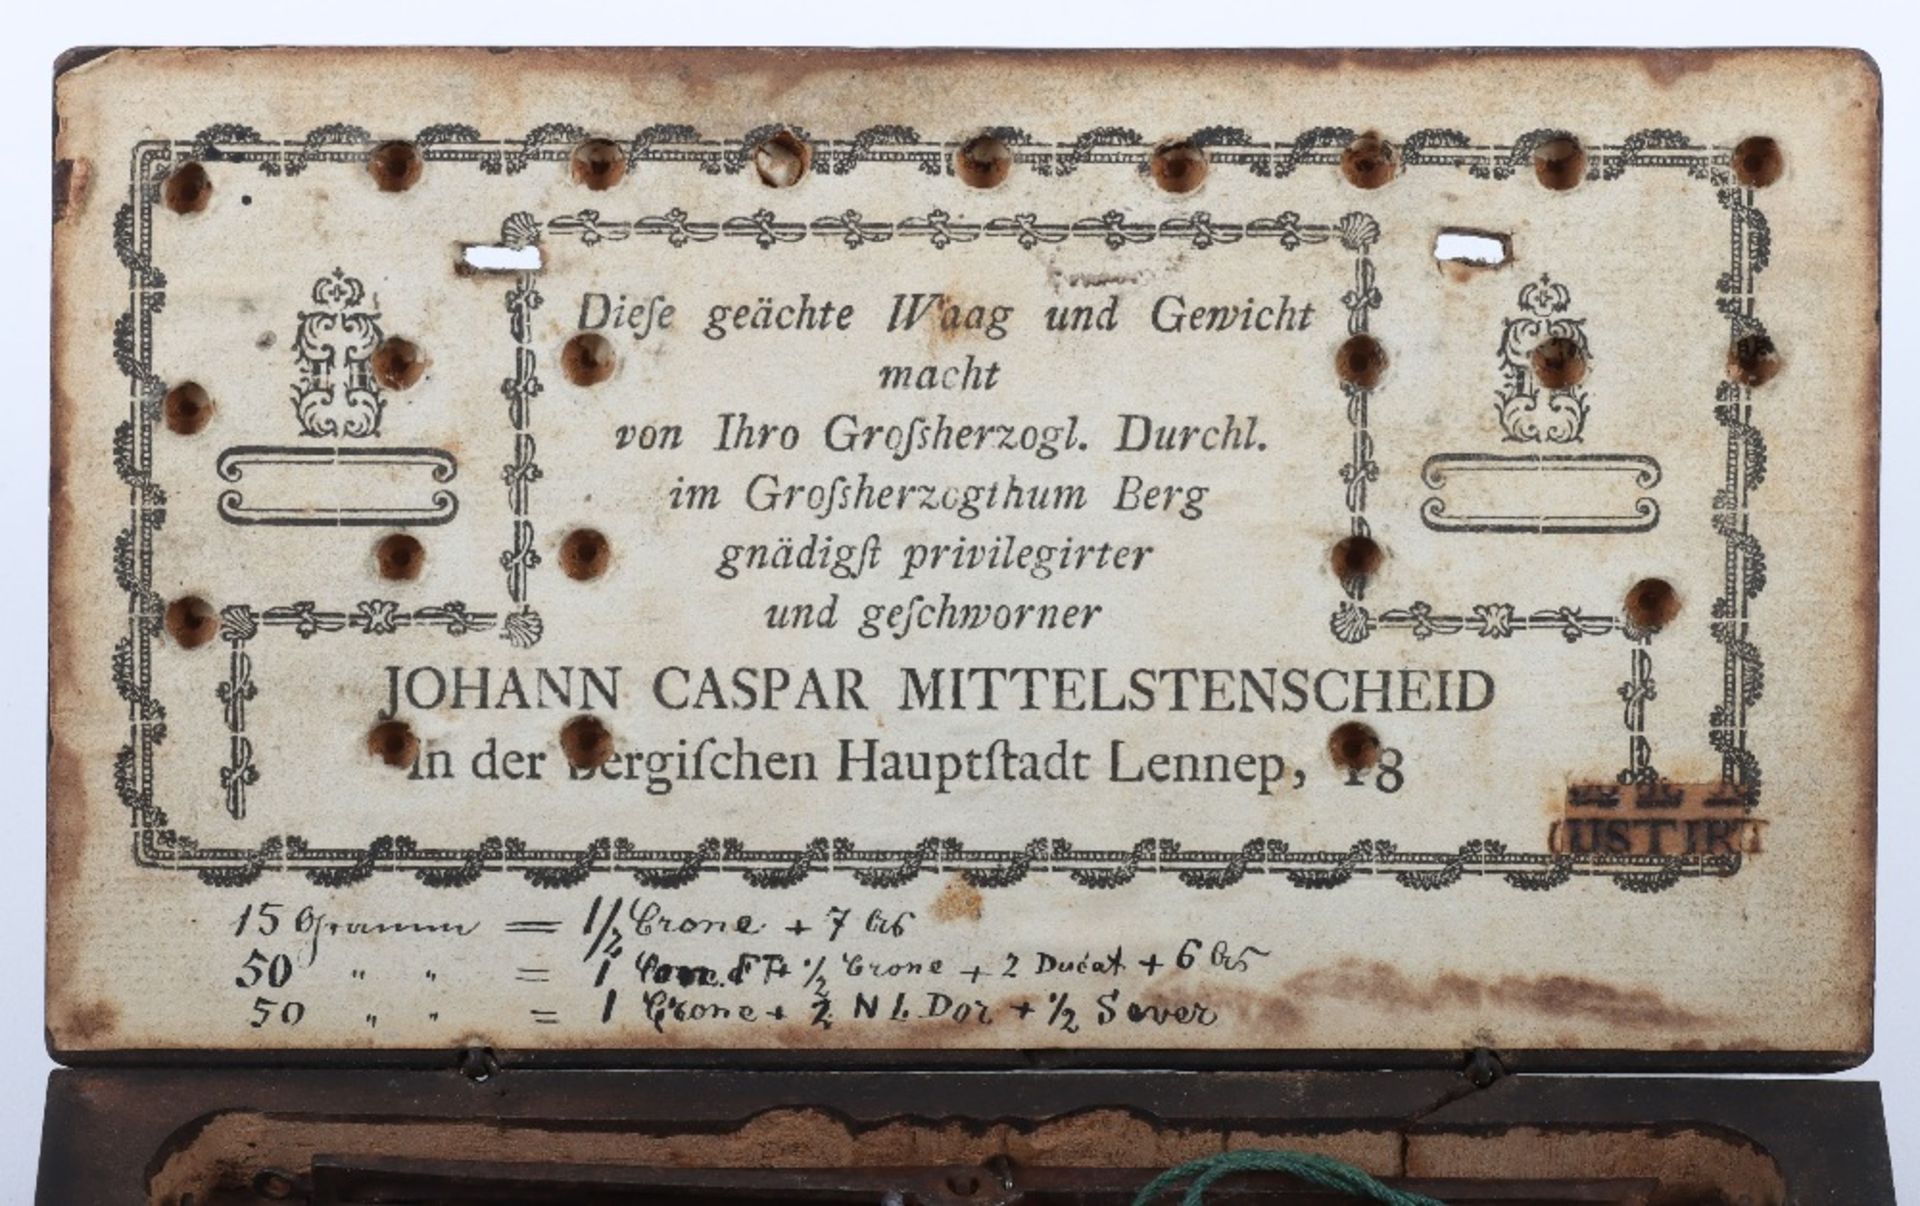 Dieſe geächte Waag und Gewicht
macht
von Ihro Groſsherzogl. Durchl.
im Groſsherzogthum Berg
gnädigſt privilegirter
und geſchworner
JOHANN CASPAR MITTELSTENSCHEID
in der Bergiſchen Hauptſtadt Lennep, 18
USTIR
15 Gramm = 1/2 Crone + 7 Grs
50 " " = 1 1/2 Crone + 2 Ducat + 6 Grs
50 " " = 1 Crone + 2 N L Dor + 1/2 Sever